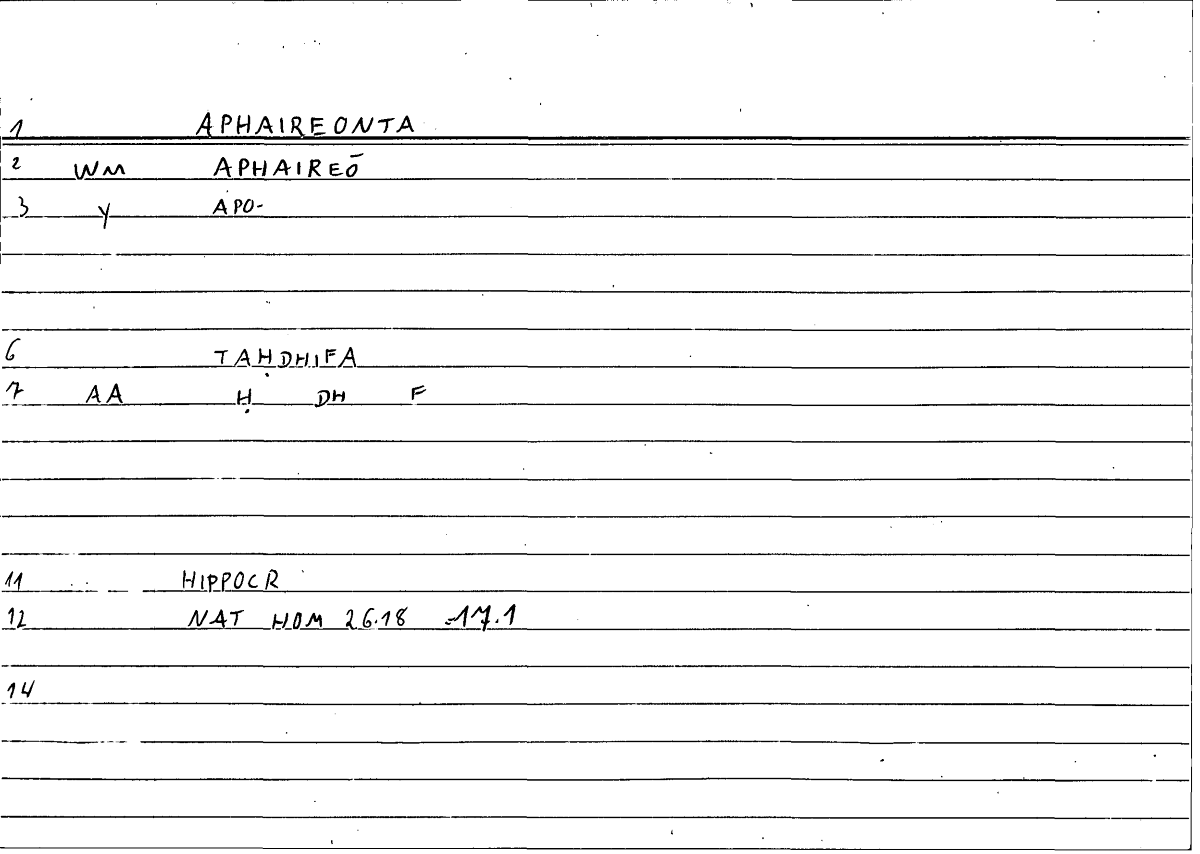 1 APHAIREONTA
2 WM APHAIREŌ
3 Y APO-
6 TAḤDHIFA
7 AA Ḥ DH F
11 HIPPOCR
12 NAT HOM 26.18 -17.1
14